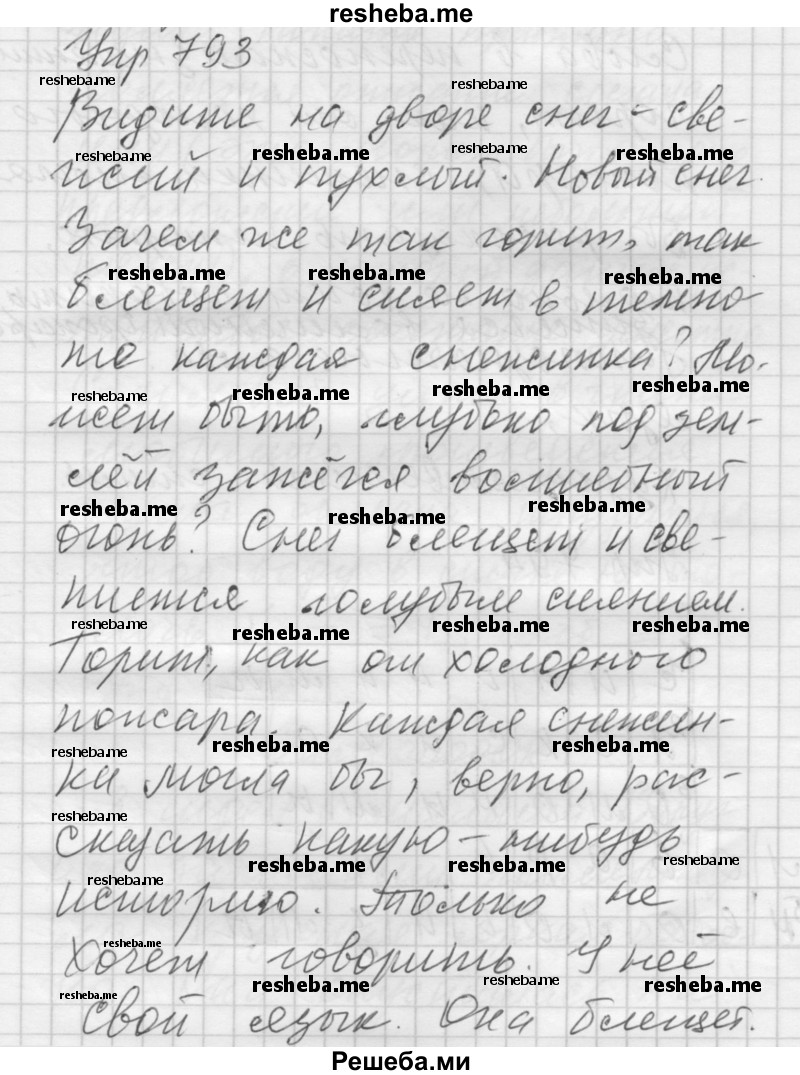 resheba.me
Упр 793
resheba.me resheba.me
Видите на дворе снег - све-
resheba.me resheba.me resheba.me resheba.me
жий и пухлый. Новый снег.
Зачем же так горит, так
resheba.me resheba.me resheba.me
блещет и сияет в темно
те каждая снежинка? Мо-
resheba.me resheba.me resheba.me resheba.me
жет быть, глубоко под зем-
лёй зажёгся волшебный
resheba.me resheba.me resheba.me
огонь? Снег блещет и све-
тится голубым сиянием.
resheba.me resheba.me resheba.me resheba.me
Горит, как от холодного
пожара. Каждая снежин-
resheba.me resheba.me resheba.me
ка могла бы, верно, рас-
resheba.me
сказать какую-нибудь
resheba.me resheba.me resheba.me
resheba.me
историю. Только не
resheba.me
хочет говорить. У неё
resheba.me resheba.me resheba.me resheba.me
свой язык. Она блещет.
Решеба.ми